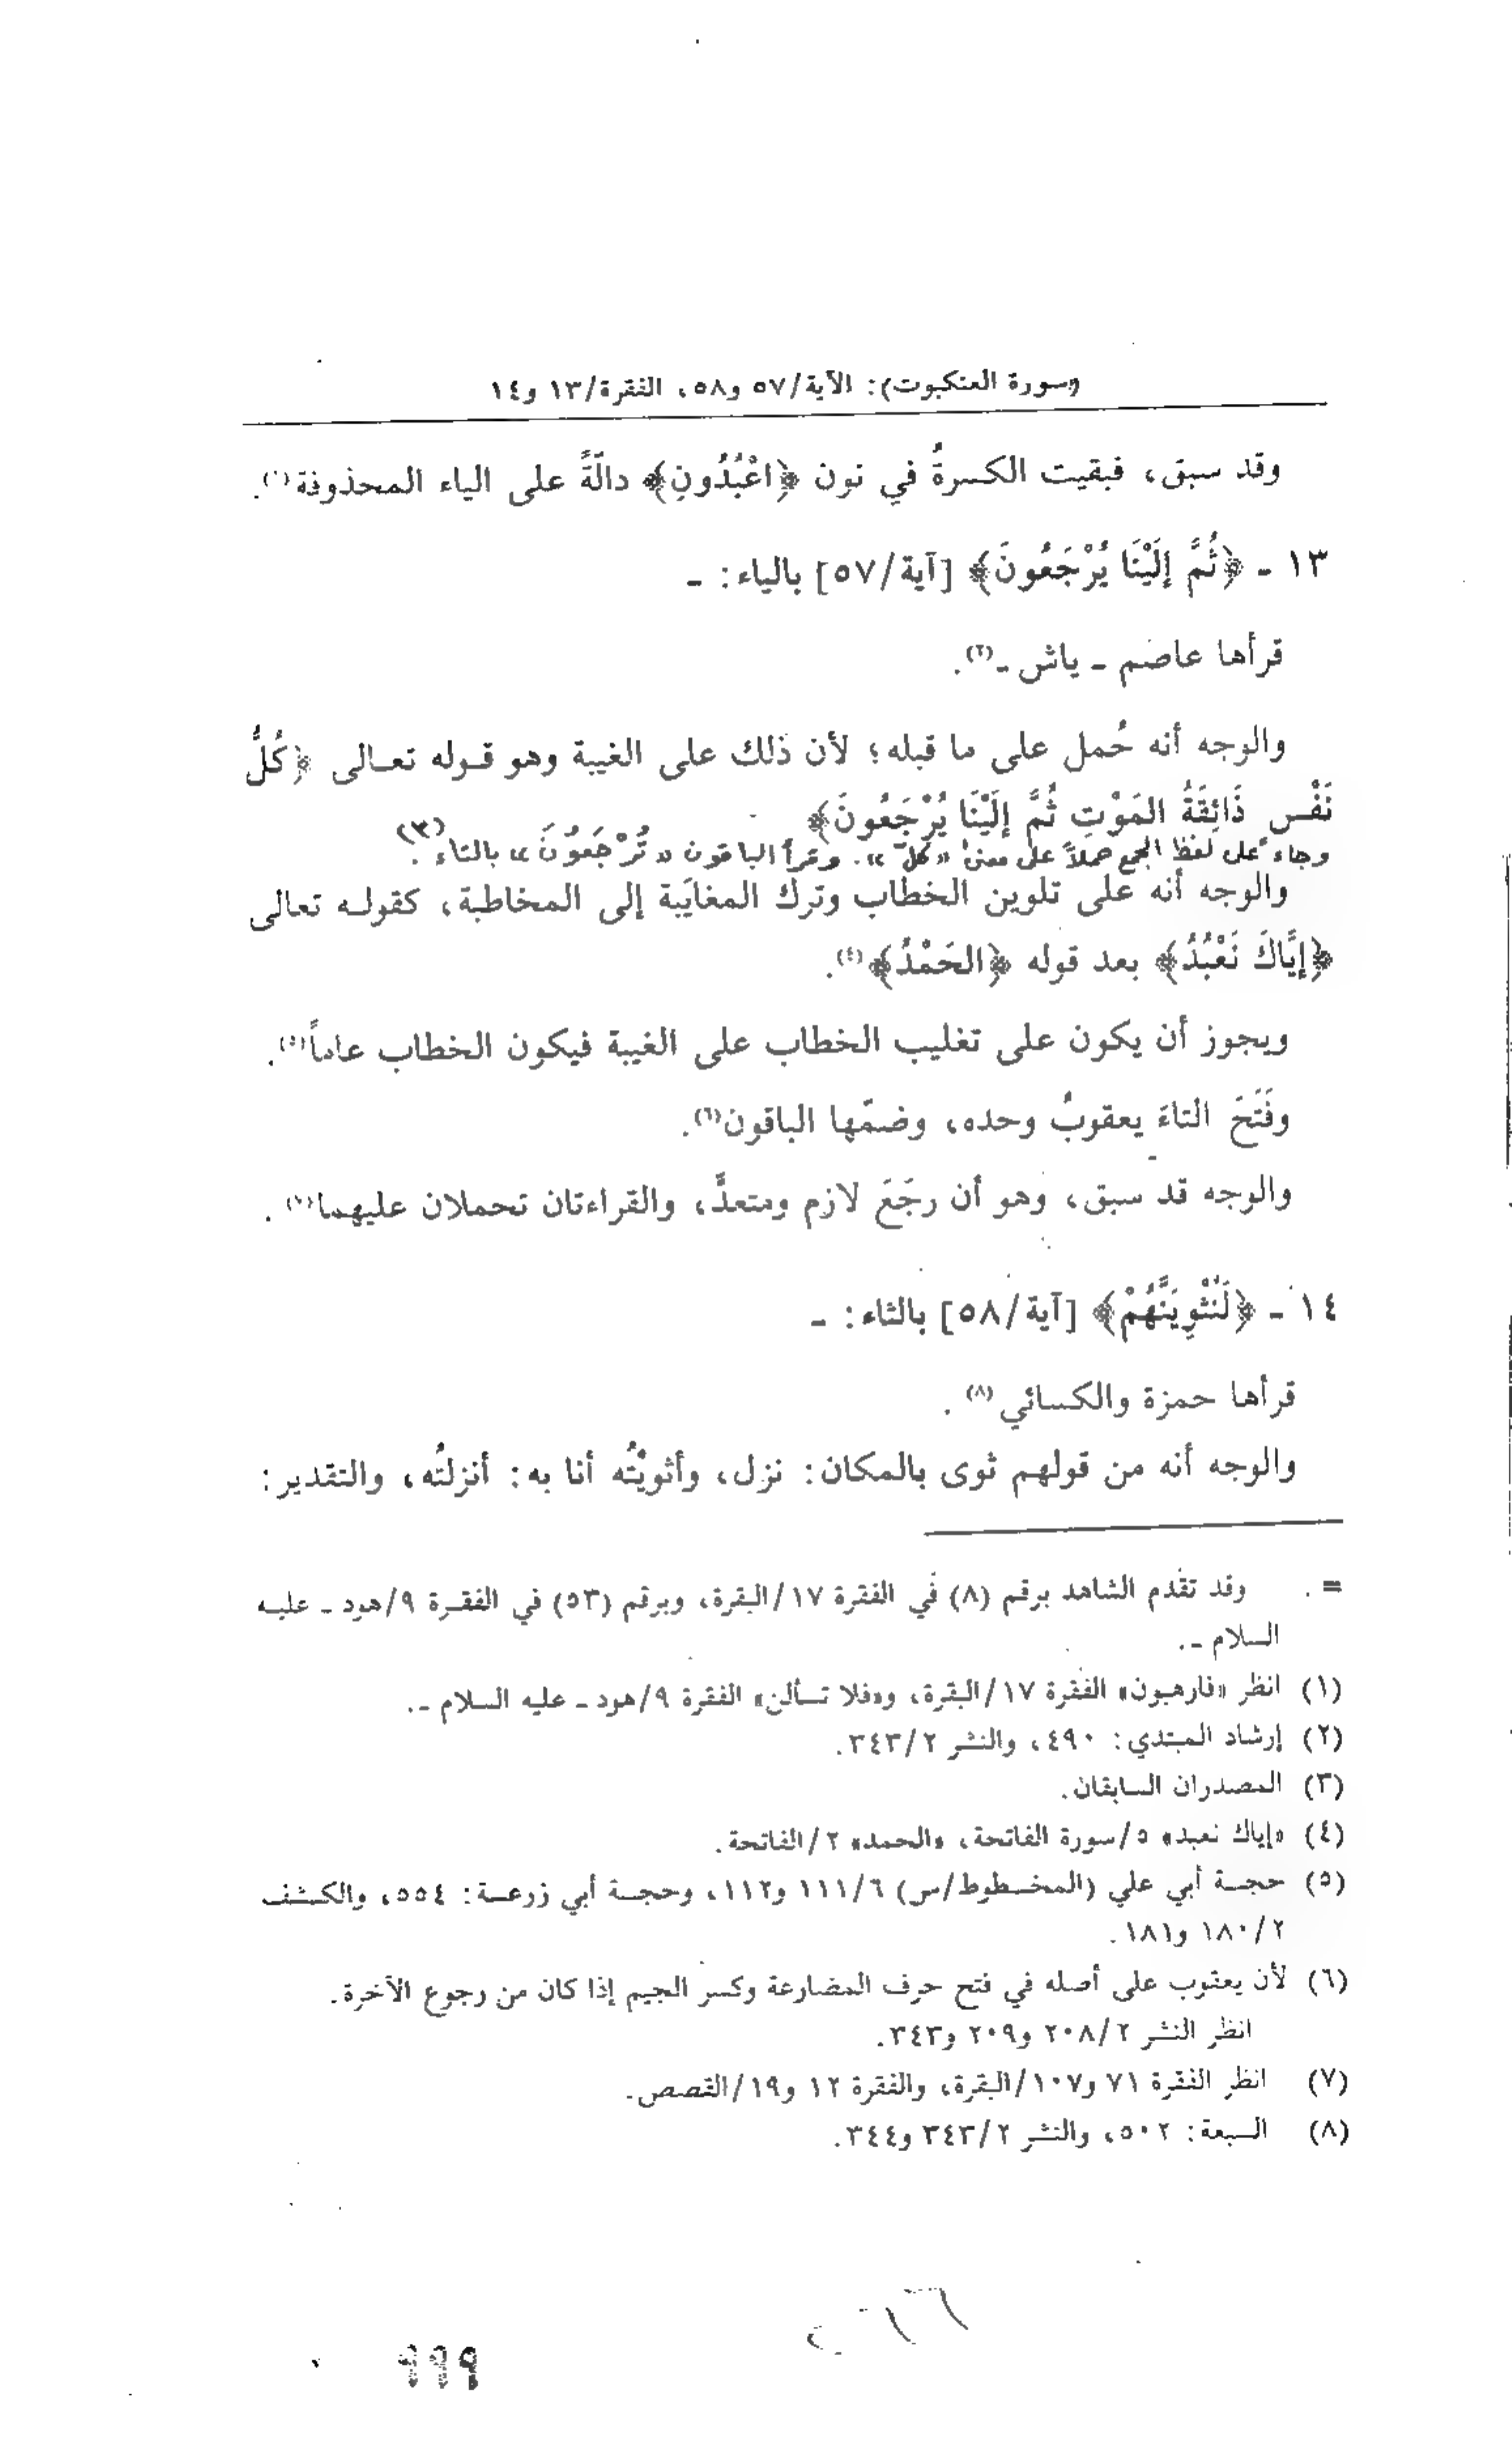 «سورة العنكبوت»: الآية/٥٧ و٥٨، الفقرة/١٣ و١٤
وقد سبق، فبقيت الكسرةُ في نون ﴿اعْبُدُونِ﴾ دالّةً على الياء المحذوفة(١).
١٣ - ﴿ثُمَّ إلَيْنَا يُرْجَعُونَ﴾ [آية/٥٧] بالياء: -
قرأها عاصم - ياش -(٢).
والوجه أنه حُمل على ما قبله؛ لأن ذلك على الغيبة وهو قوله تعالى ﴿كُلُّ
نَفْسٍ ذَائِقَةُ المَوْتِ ثُمَّ إلَيْنَا يُرْجَعُونَ﴾
وجاء على لفظ الجمع حملاً على معنى «كلّ». وقرأ الباقون «تُرْجَعُونَ» بالتاء(٣).
والوجه أنه على تلوين الخطاب وترك المغايَبة إلى المخاطبة، كقوله تعالى
﴿إيَّاكَ نَعْبُدُ﴾ بعد قوله ﴿الحَمْدُ﴾(٤).
ويجوز أن يكون على تغليب الخطاب على الغيبة فيكون الخطاب عاماً(٥).
وفَتَحَ التاءَ يعقوبُ وحده، وضمّها الباقون(٦).
والوجه قد سبق، وهو أن رجَعَ لازم ومتعدٍّ، والقراءتان تحملان عليهما(٧).
١٤ - ﴿لَنُثْوِيَنَّهُمْ﴾ [آية/٥٨] بالثاء: -
قرأها حمزة والكسائي(٨).
والوجه أنه من قولهم ثوى بالمكان: نزل، وأثويْتُه أنا به: أنزلتُه، والتقدير:
= . وقد تقدم الشاهد برقم (٨) في الفقرة ١٧/البقرة، وبرقم (٥٣) في الفقرة ٩/هود - عليه
السلام -.
(١) انظر «فارهبون» الفقرة ١٧/البقرة، و«فلا تسألن» الفقرة ٩/هود - عليه السلام -.
(٢) إرشاد المبتدي: ٤٩٠، والنشر ٣٤٣/٢.
(٣) المصدران السابقان.
(٤) «إياك نعبد» ٥/سورة الفاتحة، «الحمد» ٢/الفاتحة.
(٥) حجة أبي علي (المخطوط/س) ١١١/٦ و١١٢، وحجة أبي زرعة: ٥٥٤، والكشف
١٨٠/٢ و١٨١.
(٦) لأن يعقوب على أصله في فتح حرف المضارعة وكسر الجيم إذا كان من رجوع الآخرة.
انظر النشر ٢٠٨/٢ و٢٠٩ و٣٤٣.
(٧) انظر الفقرة ٧١ و١٠٧/البقرة، والفقرة ١٢ و١٩/القصص.
(٨) السبعة: ٥٠٢، والنشر ٣٤٣/٢ و٣٤٤.
٩٩٩